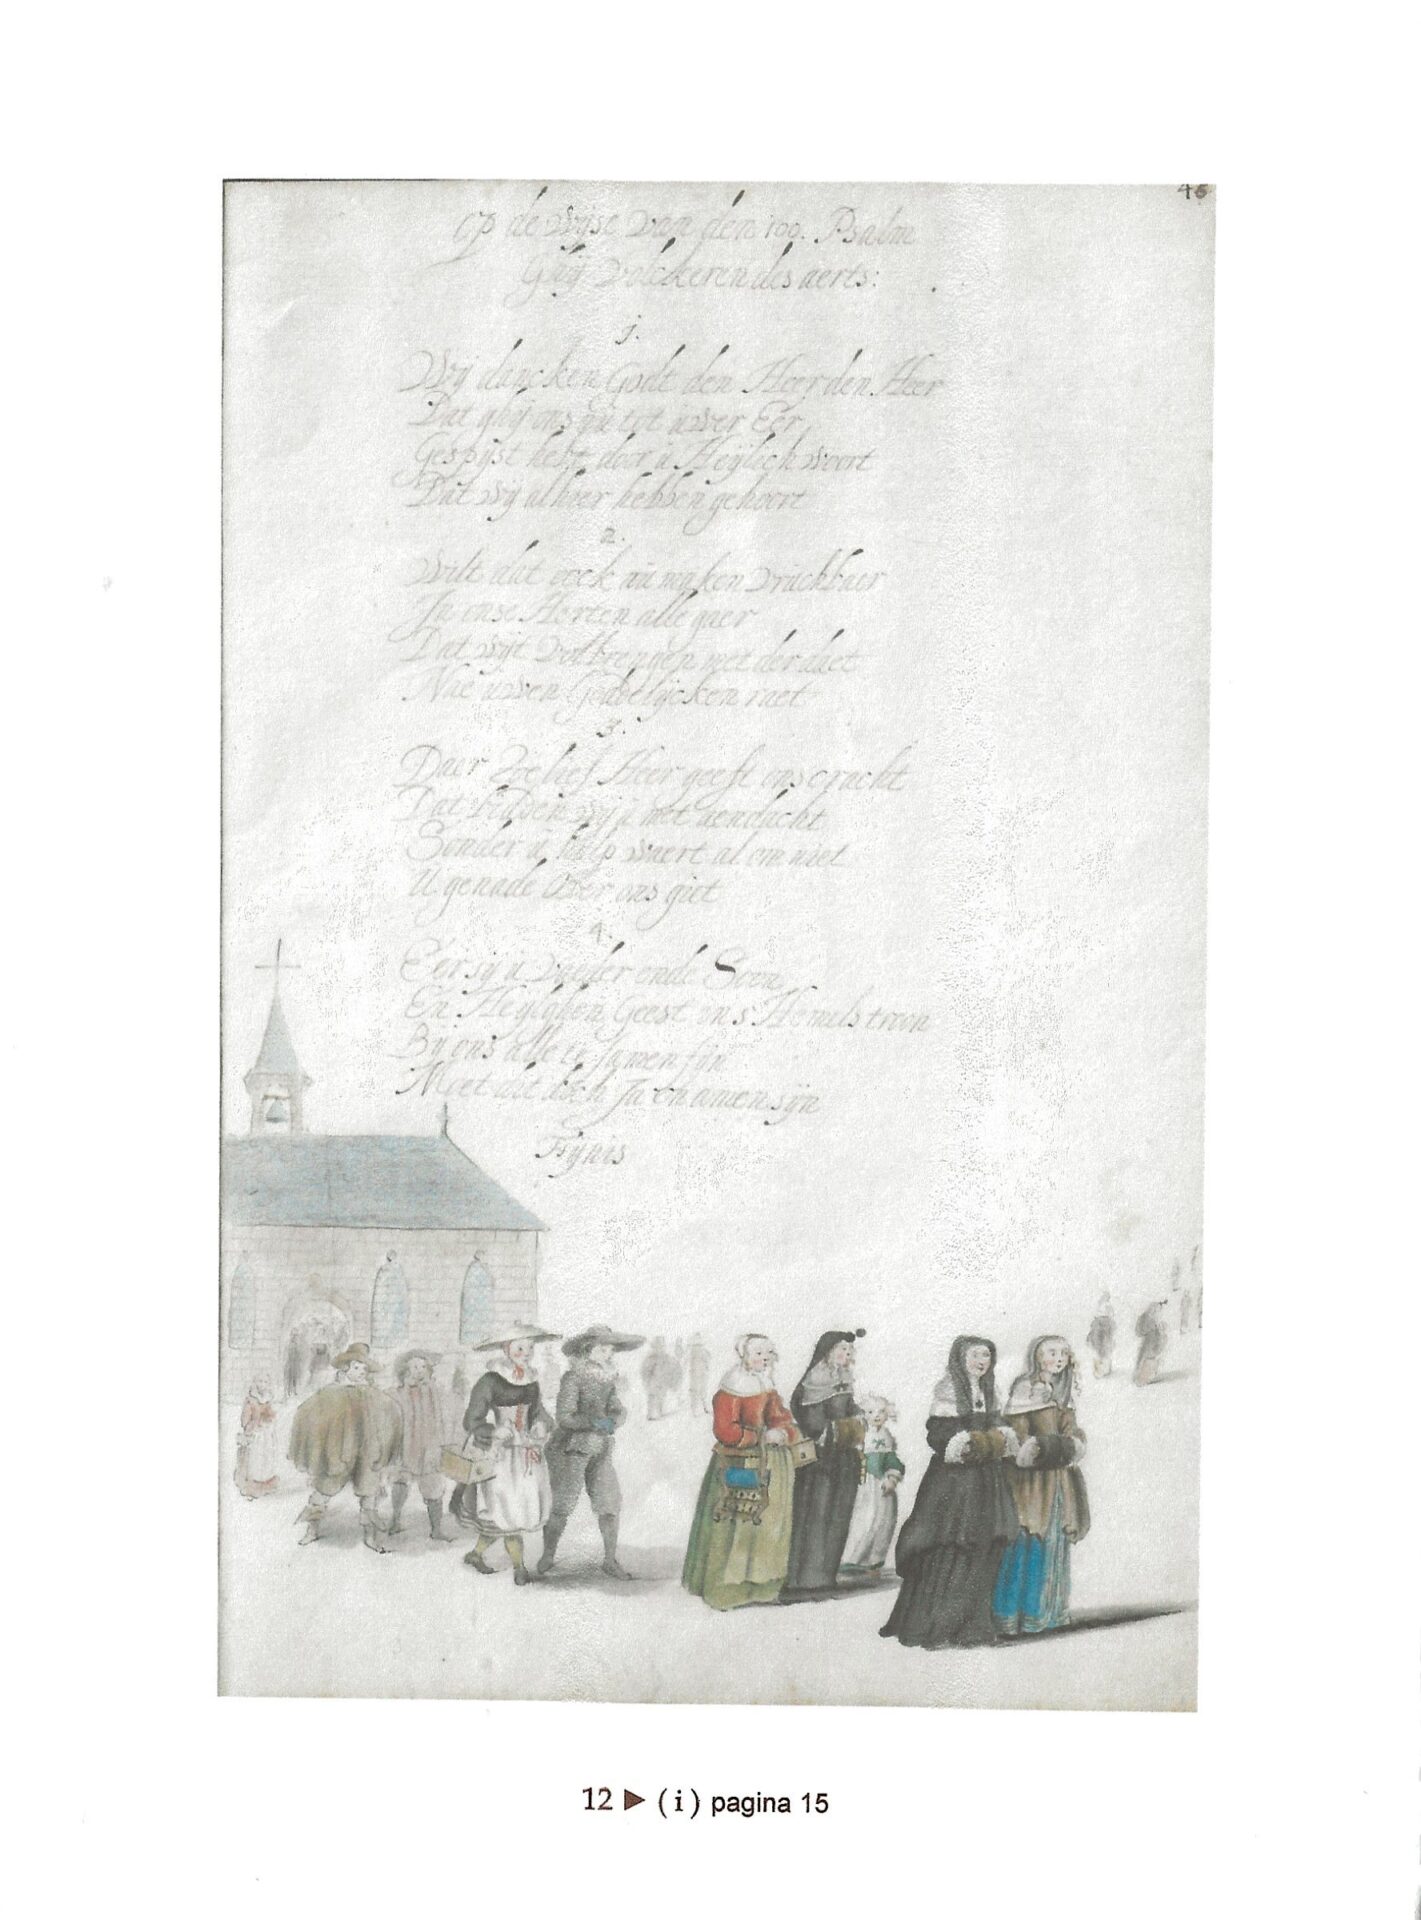 46
op de wijse van den 100. Psalm
Ghij volckeren des aerts:
j.
Wij dancken Godt den Heer den Heer
Dat ghij ons nu tot uwer Eer
Gespijst hebt door u Heijlich woort
Dat wij alhier hebben gehoort
2.
Wilt dat oock nu maken vruchbaer
In onse Herten alle gaer
Dat wijt volbrengen met der daet
Nae uwen Goddelijcken raet
3.
Daer toe lief Heer geeft ons cracht
Dat bidden wij u met aendacht
Sonder u hulp waert al om niet
U genade over ons giet
4.
Eer sij u Vaeder ende Soon
En Heylghen Geest in s Hemels troon
Bij ons alle te samen fijn
Moet dit doch Ja en amen sijn
Fijnis
12 ► (i) pagina 15